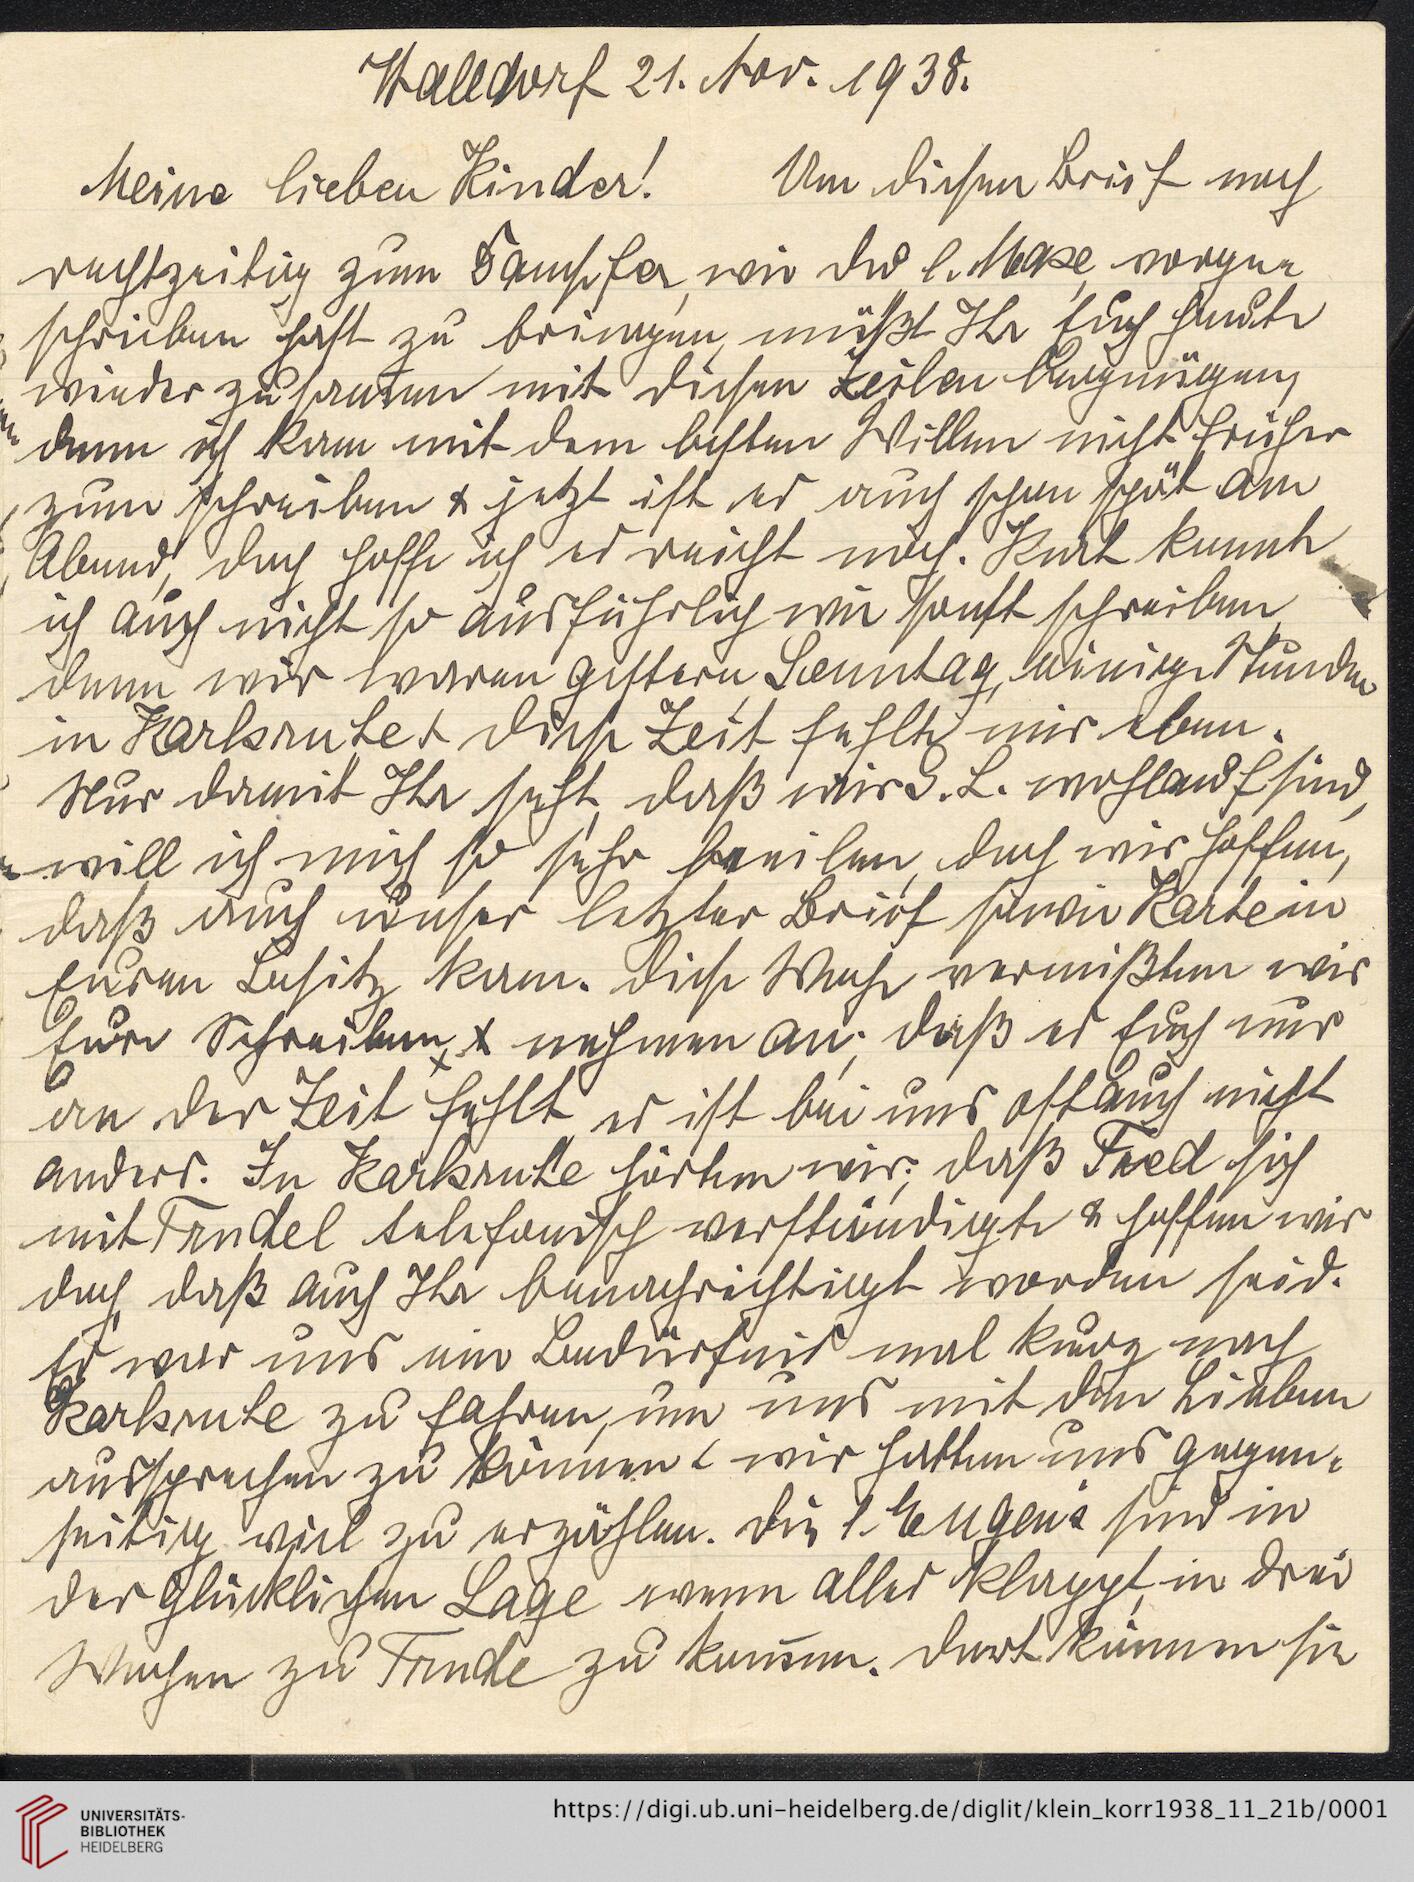 Walldorf 21. Nov. 1938.
Meine lieben Kinder! Um diesen Brief noch
rechtzeitig zum Dampfer, wie du l. Maxe, vorge-
schrieben hast zu bringen, müßt Ihr Euch heute
wieder zusammen mit diesen Zeilen begnügen,
denn ich kam mit dem besten Willen nicht früher
zum schreiben & jetzt ist es auch schon spät am
Abend, doch hoffe ich es reicht noch. Kurt konnte
ich auch nicht so ausführlich wie sonst schreiben,
denn wir waren gestern, Sonntag, einige Stunden
in Karlsruhe & diese Zeit fehlte mir eben.
Nur damit Ihr seht, daß wir G. L. wohlauf sind,
will ich mich so sehr beeilen, doch wir hoffen,
daß auch unser letzter Brief sowie Karte in
Euren Besitz kam. Diese Woche vermißten wir
Eure Schreiben, & nehmen an, daß es Euch nur
an der Zeit fehlt, es ist bei uns oft auch nicht
anders. In Karlsruhe hörten wir, daß Fred sich
mit Trudel telefonisch verständigte & hoffen wir
doch, daß auch Ihr benachrichtigt worden seid.
Es war uns ein Bedürfnis mal kurz nach
Karlsruhe zu fahren, um uns mit den Lieben
aussprechen zu können & wir hatten uns gegen-
seitig viel zu erzählen. Die l. Eugen's sind in
der glücklichen Lage wenn alles klappt, in drei
Wochen zu Trude zu kommen. Dort können sie
UNIVERSITÄTS-
BIBLIOTHEK
HEIDELBERG
https://digi.ub.uni-heidelberg.de/diglit/klein_korr1938_11_21b/0001